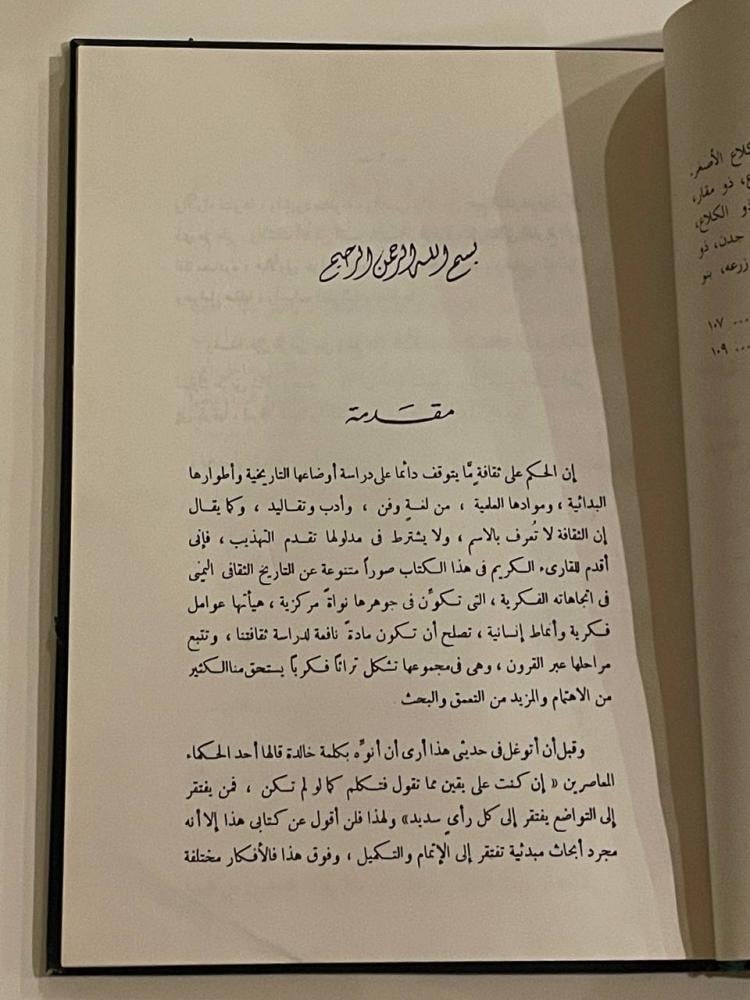 بسم الله الرحمن الرحيم
مقدمة
إن الحكم على ثقافةٍ مَّا يتوقف دائما على دراسة أوضاعها التاريخية وأطوارها
البدائية ، وموادها العلمية ، من لغةٍ وفن ، وأدب وتقاليد ، وكما يقال
إن الثقافة لا تُعرف بالاسم ، ولا يشترط فى مدلولها تقدم التهذيب ، فإنى
أقدم للقارىء الكريم فى هذا الكتاب صوراً متنوعة عن التاريخ الثقافى اليمنى
فى اتجاهاته الفكرية ، التى تكوِّن فى جوهرها نواةً مركزية ، هيأتها عوامل
فكرية وأنماط إنسانية ، تصلح أن تكون مادةً نافعة لدراسة ثقافتنا ، وتتبع
مراحلها عبر القرون ، وهى فى مجموعها تشكل تراثاً فكرياً يستحق منا الكثير
من الاهتمام والمزيد من التعمق والبحث .
وقبل أن أتوغل فى حديثى هذا أرى أن أنوِّه بكلمة خالدة قالها أحد الحكماء
المعاصرين « إن كنت على يقين مما تقول فتكلم كما لو لم تكن ، فمن يفتقر
إلى التواضع يفتقر إلى كل رأىٍ سديد» ولهذا فلن أقول عن كتابى هذا إلا أنه
مجرد أبحاث مبدئية تفتقر إلى الإتمام والتكميل ، وفوق هذا فالأفكار مختلفة
كلاع الأصغر.
ذو مقار،
ذو الكلاع،
جدن، ذو
زرعه، بنو
... ١٠٧
... ١٠٩